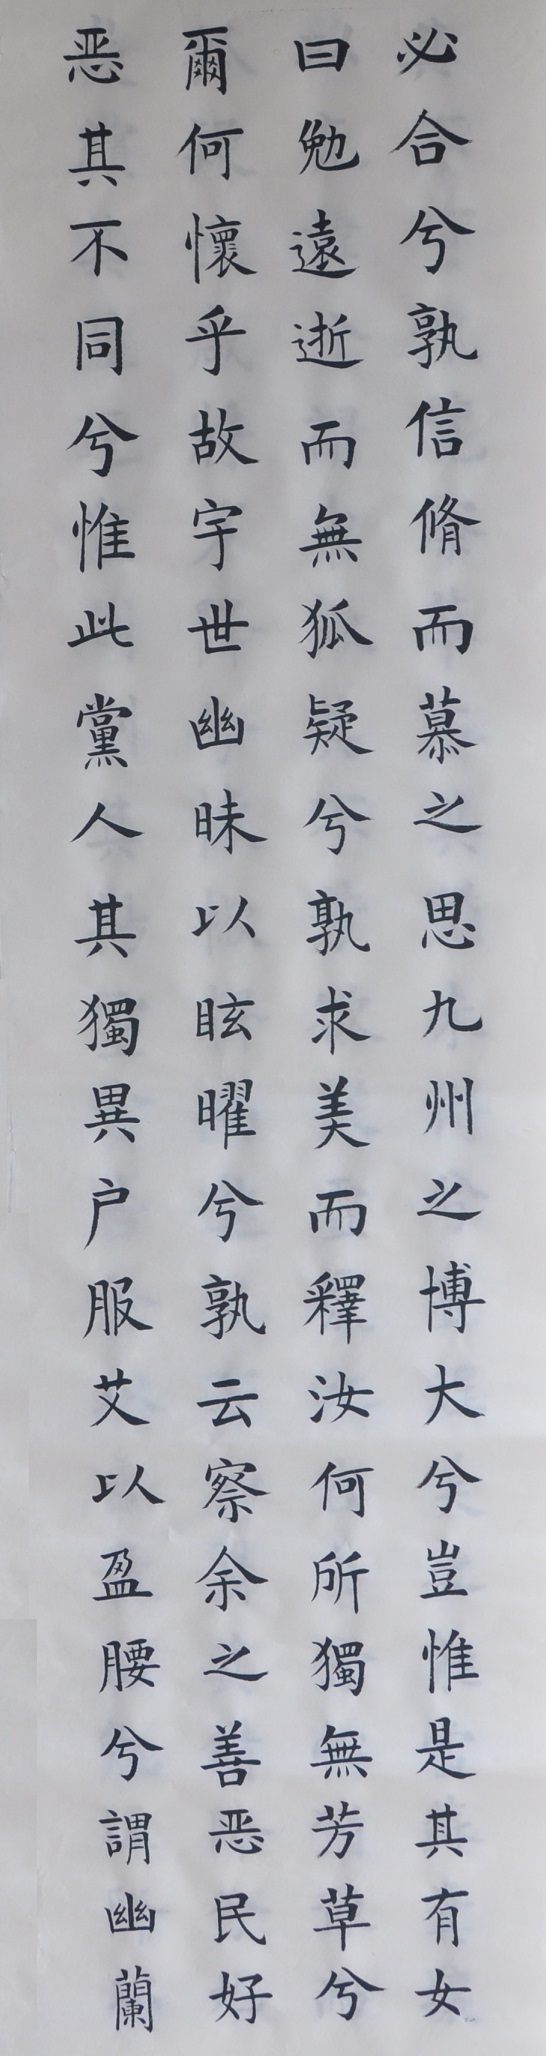 必合兮孰信脩而慕之思九州之博大兮豈惟是其有女
曰勉遠逝而無狐疑兮孰求美而釋汝何所獨無芳草兮
爾何懷乎故宇世幽昧以眩曜兮孰云察余之善恶民好
恶其不同兮惟此黨人其獨異户服艾以盈腰兮謂幽蘭